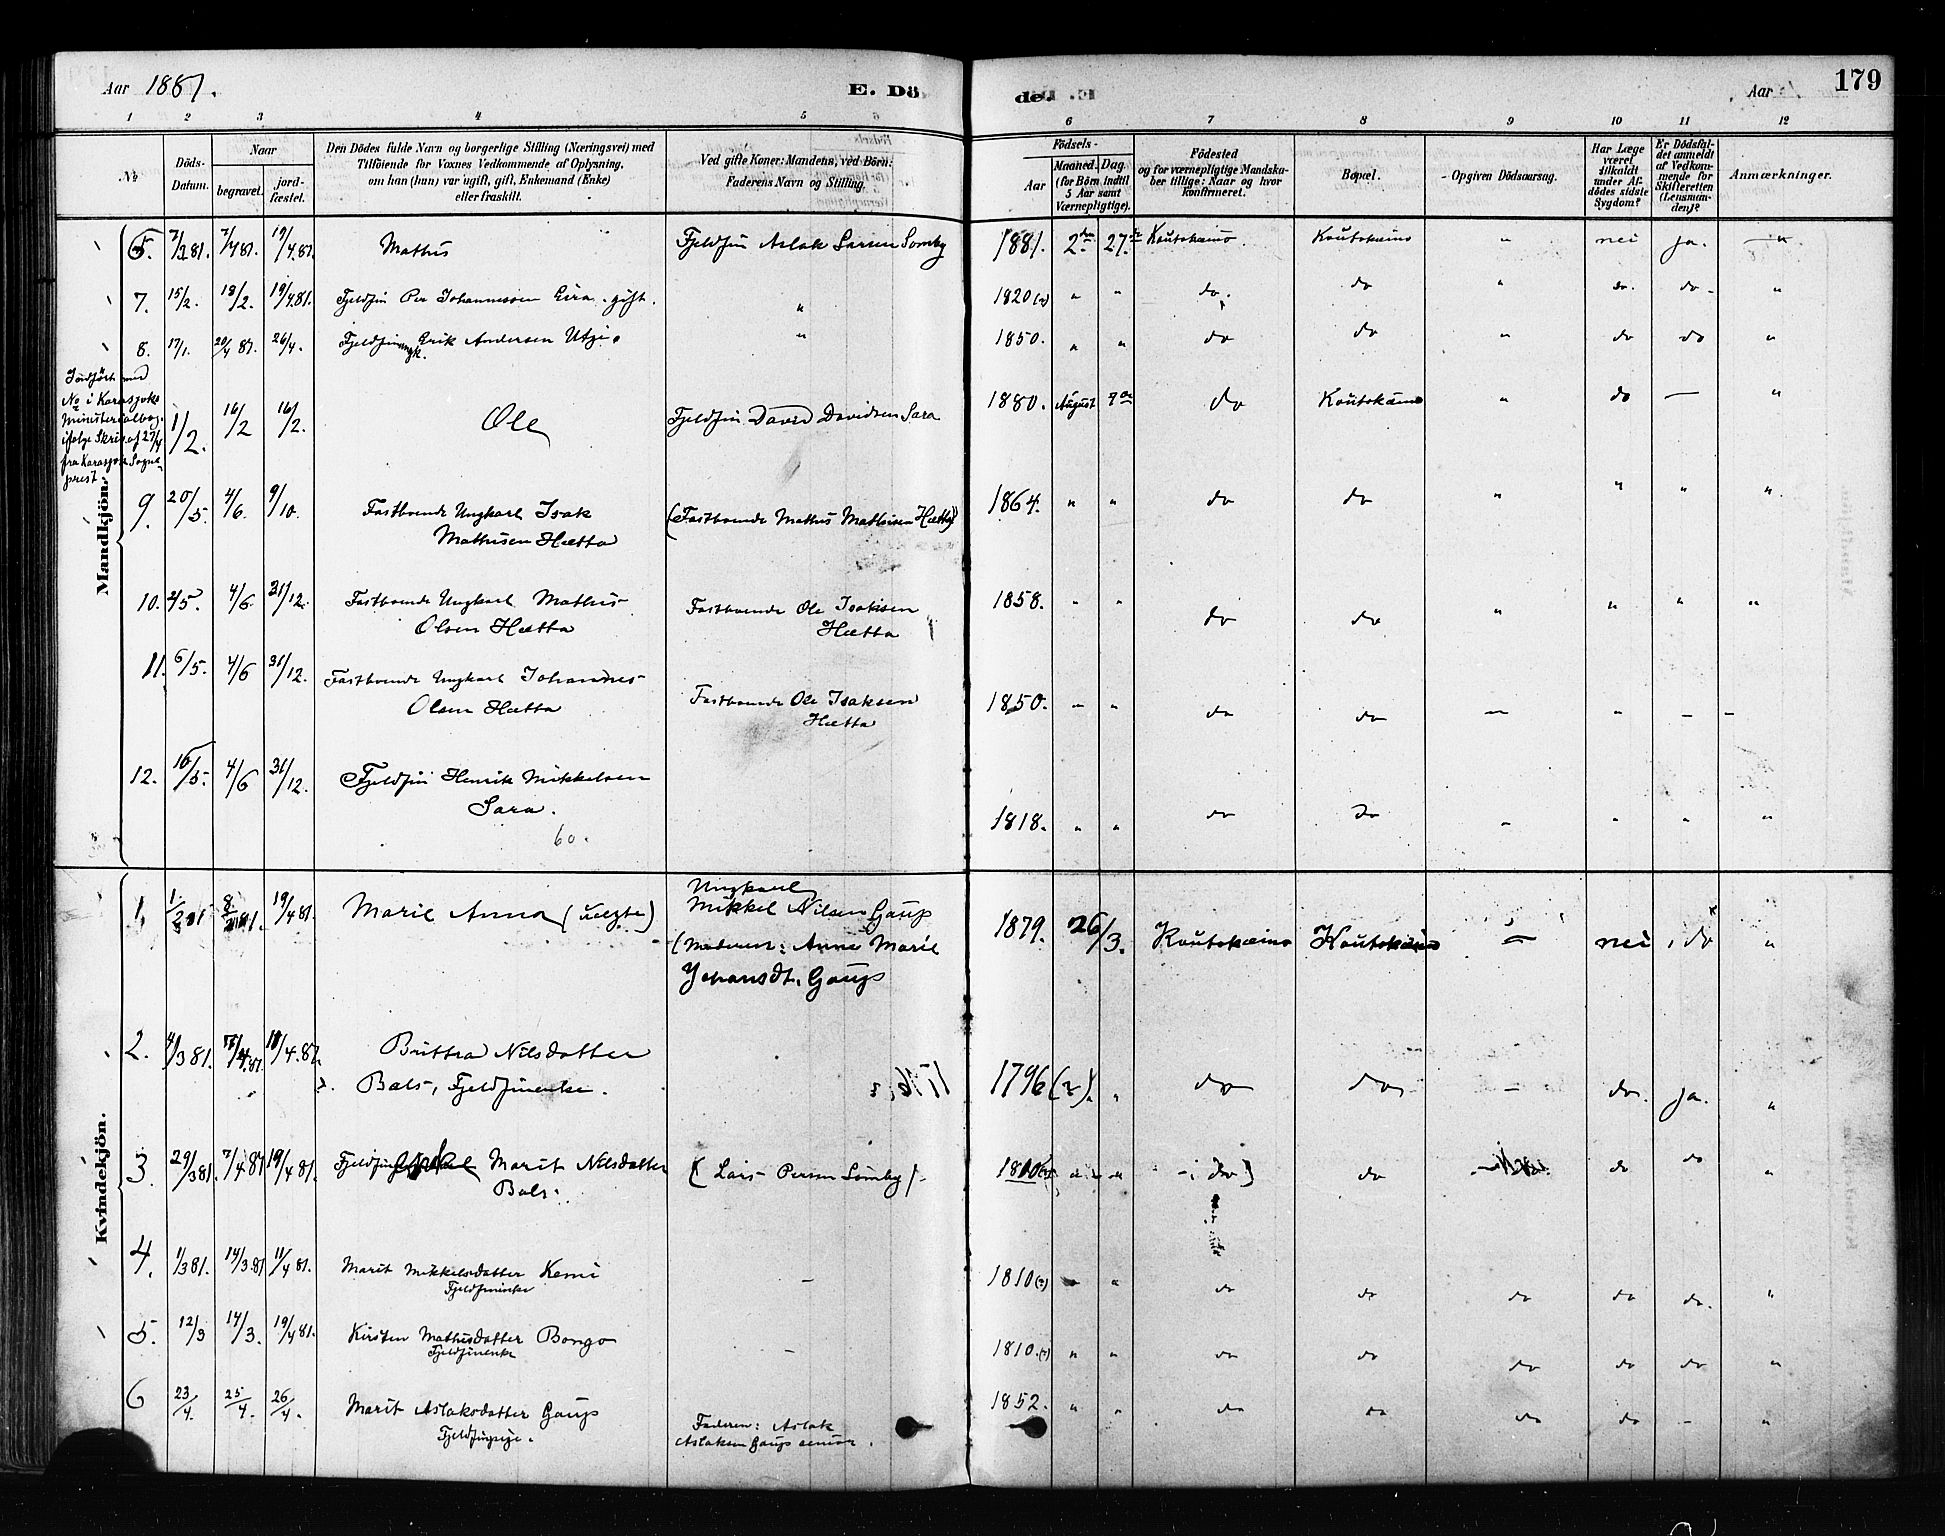 Aar 1881.
E. Dö
de.
Aar
179
1 2 3 4 5 6 7 8 9 10 11 12
No
Döds-Datum.
Naar
begravet.
jord-fæstet.
Den Dödes fulde Navn og borgerlige Stilling (Næringsvei) med
Tilföiende for Voxnes Vedkommende af Oplysning,
om han (hun) var ugift, gift, Enkemand (Enke)
eller fraskilt.
Ved gifte Koner: Mandens, ved Börn:
Faderens Navn og Stilling.
Födsels-
Aar
Maaned. Dag.
(for Börn indtil
5 Aar samt
Værnepligtige).
Födested
og for værnepligtige Mandska-
ber tillige: Naar og hvor
konfirmeret.
Bopæl.
Opgiven Dödsaarsag.
Har Læge
været
tilkaldt
under Af-
dödes sidste
Sygdom?
Er Dödsfal-
det anmeldt
af Vedkom-
mende for
Skifteretten
(Lensman-
den)?
Anmærkninger.
Mandkjön.
7/4 81. 19/4.81. Mathis Fjeldfin Aslak Larsen Somby 1881. 2 27. Koutokæino Koutokæino " nei ja. "
7. 15/2. 18/2. 19/4.81. Fjeldfin Per Johannessen Eira. gift. " 1820 " " do. do " do. do "
8. 17/1. 20/4 81. 26/4. Fjeldfin Erik Andersen Utsi. " 1850. " " do do " do do "
Indført med
No i Karasjoks
Ministerialbog
ifølge Skriv. af 27/4
fra Karasjok Sogne-
prest
1/2. 16/2 16/2. Ole Fjeldfin David Davidsen Sara 1880. August do Koutokæino " do — "
9. 20/5. 4/6. 9/10. Fastboende Ungkarl Isak
Mathisen Hætta (Fastboende Mathis Mathisen Hætta) 1864. " " do do " " " "
10. 2/5. 4/6. 31/12. Fastboende Ungkarl Mathis
Olsen Hætta Fastboende Ole Isaksen
Hætta 1858. " " do do " " " "
11. 6/5. 4/6 31/12. Fastboende Ungkarl Johannes
Olsen Hætta Fastboende Ole Isaksen
Hætta 1850. " " do do — " — —
12. 16/5. 4/6 31/12. Fjeldfin Henrik Mikkelsen
Sara.
60. 1818. " " do do " " " "
Kvindekjön.
1. 19/4 81. Marie Anna (uægte) Ungkarl
Mikkel Nilsen Gaup
(Moderen: Anne Marie
Johansdt. Gaup 1879. 26/3. Koutokæino Koutokæino — nei do "
2. Brittha Nilsdatter
Bals, Fjeldfinenke. 1796 " " do do — do. ja. "
3. 29/3 81. 7/4.81 19/4 81. Marit Nilsdatter
Bals (Lars Persen Somby) do do do do "
4. 1/3 81. 14/3.81 11/4 81. Marit Mikkelsdatter Kemi
Fjeldfinenke — 1810 " do do do do do. "
5. 12/3 14/3. 19/4 81. Kirsten Mathisdatter Bongo
Fjeldfinenke — 1810. " " do do do do do "
6 23/4. 25/4. 26/4. Marit Aslaksdatter Gaup
Fjeldfinpige. Faderen: Aslak
Aslaksen Gaup senior. 1852. " " do do do do — "